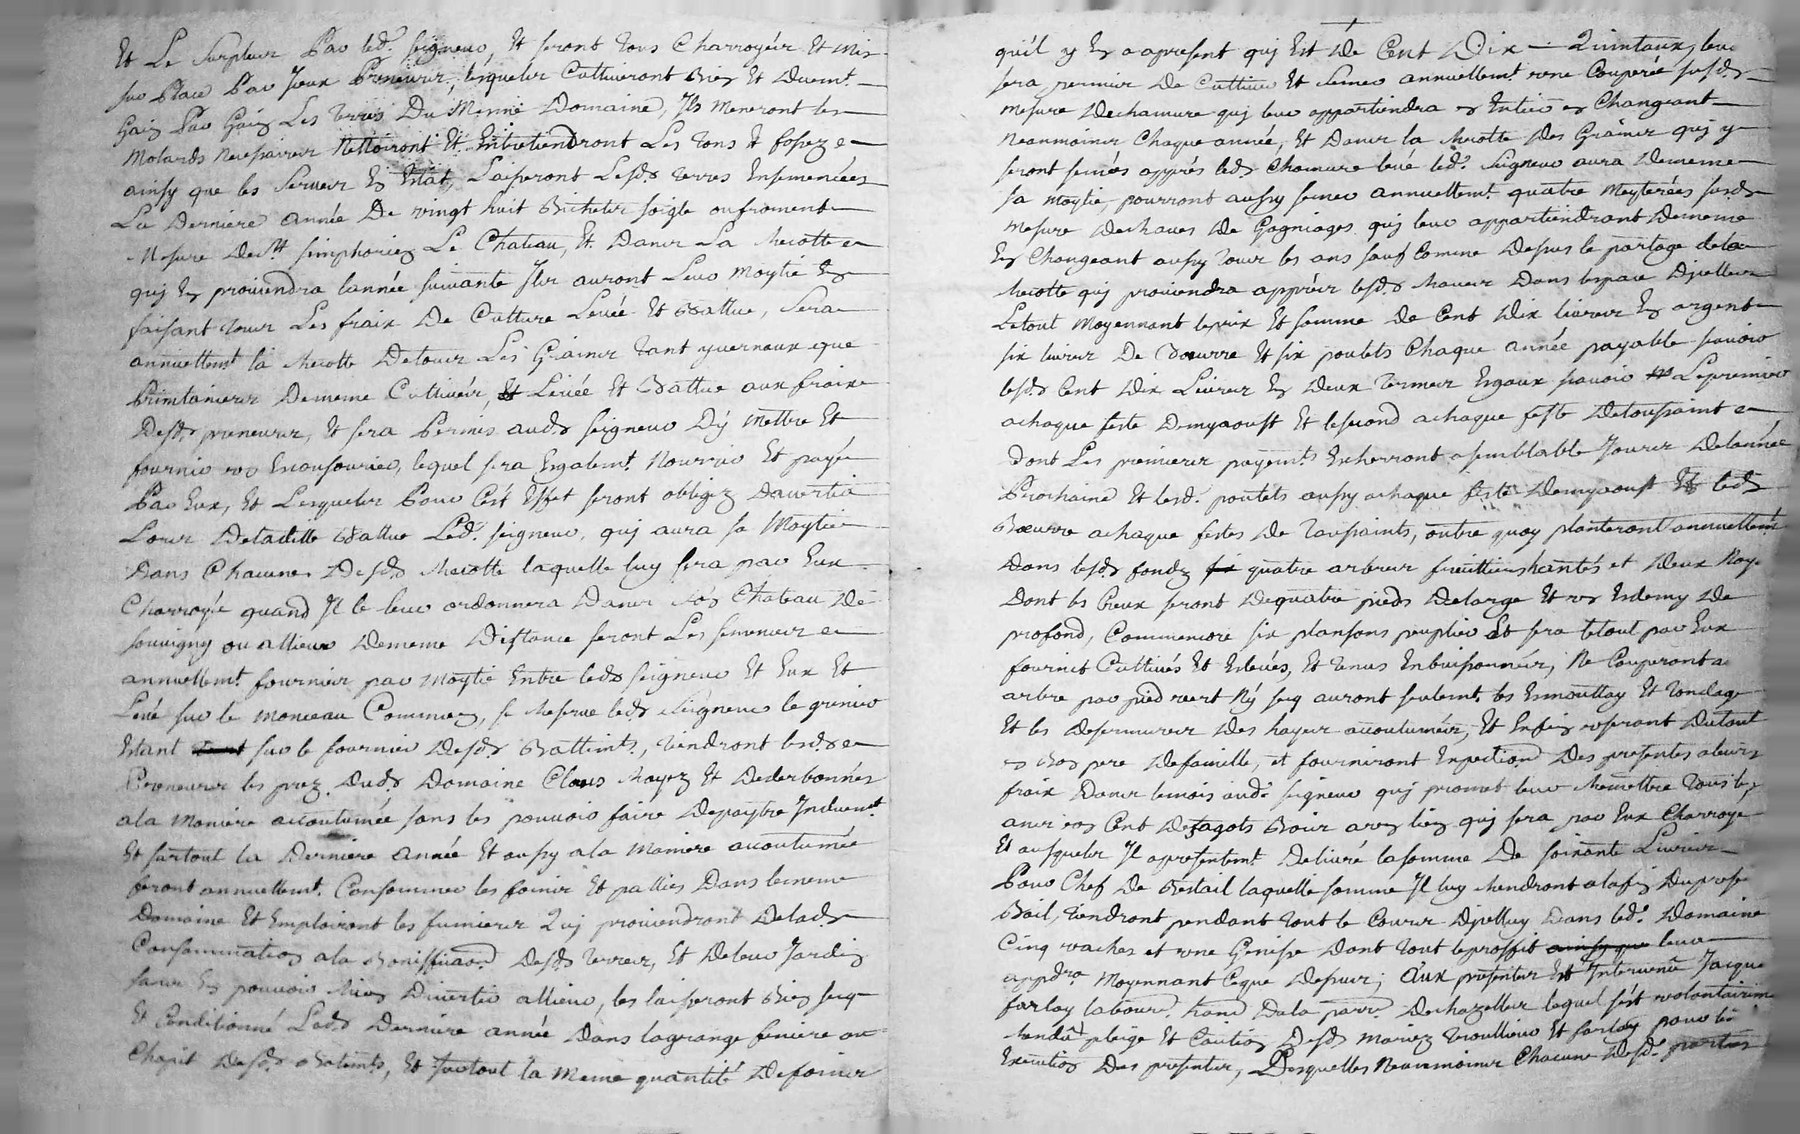 Et Le Surplus Par led. seigneur, Et seront tous Charroyés Et Mis
sur Place Par Iceux Preneurs, lesquels Cultiveront Bien Et Duemt.
Gain Par Gain Les terres Du Meme Domaine, Ils Meneront les
Molards Necessaires Nettoiront Et Entretiendront Les Fossez
ainsy que les serves En Etat, Laisseront Lesds. terres Ensemencées
La Derniere année De vingt huit Bichets soigle ou froment
Mesure De St. simphorien Le Chateau, Et Dans La Recolte
quy En proviendra lannée suivante Ils auront Leur Moytié En
faisant tous Les fraix De Culture Levée Et Battue, Sera
annuellemt la Recolte De tous Les Grains tant yvernaux que
Printaniers De meme Cultivés, Levée Et Battue aux fraix
Desds. preneurs, Et sera Permis auds. seigneur D'y Mettre Et
fournir un Escoussourier, lequel sera Egalemt. Nourrie Et payé
Par Eux, Et Lesquels Pour Cest Effet seront obligez Davertir
Lors De ladite Battue Led. seigneur, quy aura sa Moytié
Dans Chacune Desds. Recolte laquelle luy sera par Eux
Charroyée quand Il le leur ordonnera Dans son Chateau De
souvigny ou allieur De meme Distance seront Les semences
annuellemt. fournies par Moytié Entre leds. seigneur Et Eux Et
Levé sur le Monceau Commun, se Reserve leds. Seigneur le grenier
Estant sur le fournier Desds. Battimts., tiendront lesds.
Preneurs les prez Duds. Domaine Clous Rayez Et Deterbonnés
a la Maniere accoutumée sans les pouvoir faire Depaytre Induemt.
Et surtout la Derniere année Et aussy a la Maniere accoutumée
feront annuellemt. Consommer les foins Et pallies Dans le meme
Domaine Et Employront les fumiers Quy proviendront De lads.
Consommation a la Bonniffication Desds. terres, Et De leur Jardin
sans En pouvoir Rien Divertir allieur, les laisseront Bien secq
Et Conditionné Lads. Derniere année Dans la grange feniere ou
Chapit Desds. Batimts., Et surtout la Meme quantité De foins
qu'il y En a apresent quy Est De Cent Dix Quintaux, leur
sera permis De Cultiver Et semer annuellemt. une Couperée susds.
Mesure De chanvre quy leur appartiendra en Entier en Changeant
Neanmoins Chaque année, Et Dans la Recolte Des Grains quy y
seront semés apprés leds. Chanvre levé led. Seigneur aura De meme
sa Moytié, pourront aussy semer annuellemt. quatre Meyterées susds.
Mesure De Raves De Gagniages quy leur appartiendront De meme
En Changeant aussy tous les ans sauf Comme Dessus le partage de la
Recolte quy proviendra apprés lesds. Raves Dans lespace D'icelles
Le tout Moyennant le prix Et somme De Cent Dix livres En argent
six livres De Beurre Et six poulets Chaque année payable savoir
lesds. Cent Dix Livres En Deux termes Egaux savoir Le premier
a chaque feste Demyaoust Et le second a chaque feste De toussaint
Dont Les premiers payemts. Escherront a semblable Jours De lannée
Prochaine Et lesd. poulets aussy a chaque feste Demyaoust Et leds.
Beurre a chaque festes De toussaints, outre quoy planteront annuellemt.
Dans lesds. fonds quatre arbres fruitiers hantés et Deux Noy.
Dont les Creux seront De quatre pieds De large Et un Et demy De
profond, Comme encore six plansons peuplier Et sera le tout par Eux
fournit Cultivés Et Elevés, Et tenus Enbuissonnés, Ne Couperont
arbre par pied vert Ny secq auront seulemt. les Emouttay Et tondage
Et les Desermures Des hayes accoutumées, Et Enfin useront Du tout
en Bon pere De famille, et fourniront Expedition Des presentes a leurs
fraix Dans le mois aud. seigneur quy promet leur Remettre tous les
ans un Cent De fagots Bois avec lien quy sera par Eux Charroyé
Et ausquels Il a presentemt. Delivré la somme De soixante Livres
Pour Chef De Bestail laquelle somme Ils luy Rendront a la fin Du presᵗ
Bail, tiendront pendant tout le Cours D'icelluy Dans led. Domaine
Cinq vaches et une Genisse Dont tout le proffit ainsy que leur
appdra. Moyennant Ceque Dessus; Aux presentes Est Intervenu Jacque
farlay labour. hant De la parr. De chazelles lequel s'est volontairemt
rendu pleige Et Caution Desds. Mariez trouillieux Et farlay pour l'
Execution Des presentes, Desquelles Neanmoins Chacune Desd. parties